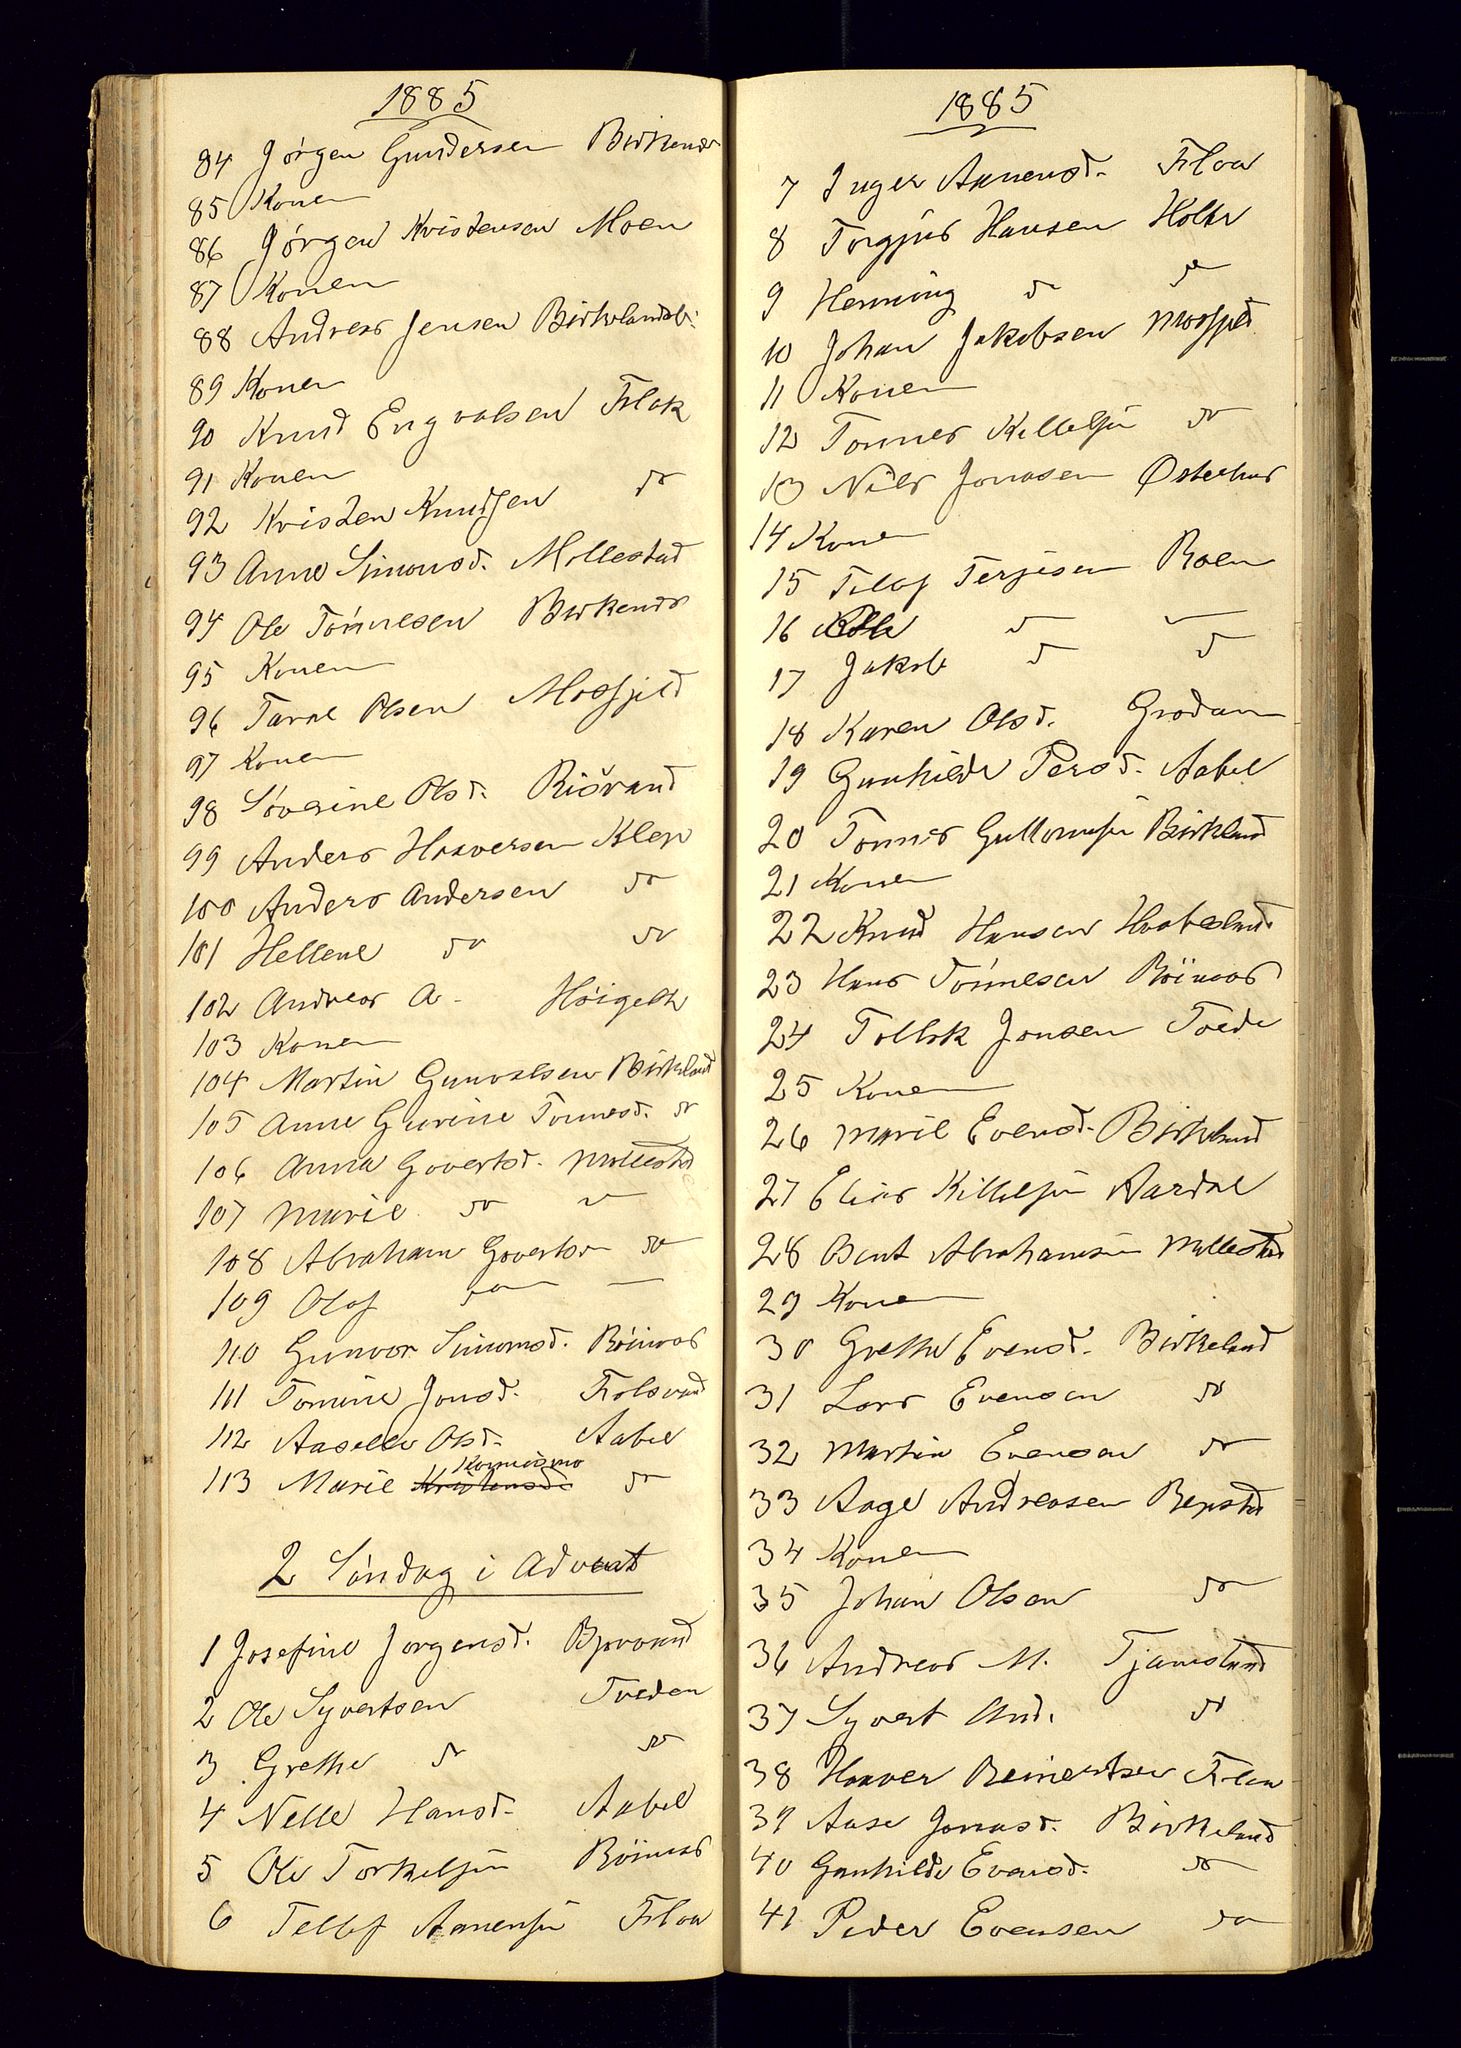 1885
84 Jørgen Gundersen Birkenes
85 Konen
86 Jørgen Kristensen Moen
87 Konen
88 Andreas Jensen Birkelandsb.
89 Konen
90 Knud Engvalsen Flak
91 Konen
92 Kristen Knudsen do
93 Anne Simonsd. Mollestad
94 Ole Tönnesen Birkenes
95 Konen
96 Taral Olsen Mosfjeld
97 Konen
98 Søverine Olsd. Risvand
99 Anders Haaversen Klep
100 Anders Andersen do
101 Hellene do do
102 Andreas A. Höigilt
103 Konen
104 Martin Gunvalsen Birkeland
105 Anne Gurine Tonnesd. do
106 Anna Govertsd. Mollestad
107 Marie do do
108 Abraham Govertsn do
109 Olaf do —
110 Gunvor Simonsd. Röinaas
111 Tomine Jensd. Fidsvand
112 Aaselle Olsd. Aabel
113 Marie Kristensd. do
2 Söndag i Advent
1 Josefine Jørgensd. Bjorvand
2 Ole Syvertsen Tveden
3 Grethe do do
4 Nelle Hansd. Aabel
5 Ole Torkelsen Röinaas
6 Tellef Aanensen Floa
1885
7 Inger Aanensd. Floa
8 Torgjus Hansen Holte
9 Henning do do
10 Johan Jakobsen Mosfjeld
11 Konen
12 Tonnes Killelsen do
13 Nils Jonasen Østerhus
14 Konen
15 Tellef Terjesen Roen
16 do do
17 Jakob do do
18 Karen Olsd. Grodum
19 Gunhilde Persd. Aabel
20 Tonnes Guttormsen Birkland
21 Konen
22 Knud Hansen Haabesland
23 Hans Tönnesen Röinaas
24 Tollak Jonsen Tvede
25 Konen
26 Marie Evensd. Birkeland
27 Elias Killelsen Aardal
28 Bent Abrahamsen Mollestad
29 Konen
30 Grethe Evensd. Birkeland
31 Lars Evensen do
32 Martin Evensen do
33 Aage Andreasen Repstad
34 Konen
35 Johan Olsen do
36 Andreas M. Tjamsland
37 Syvert And. do
38 Haaver Reinertsen Floa
39 Aase Jonasd. Birkeland
40 Gunhilde Evensd. do
41 Peder Evensen do